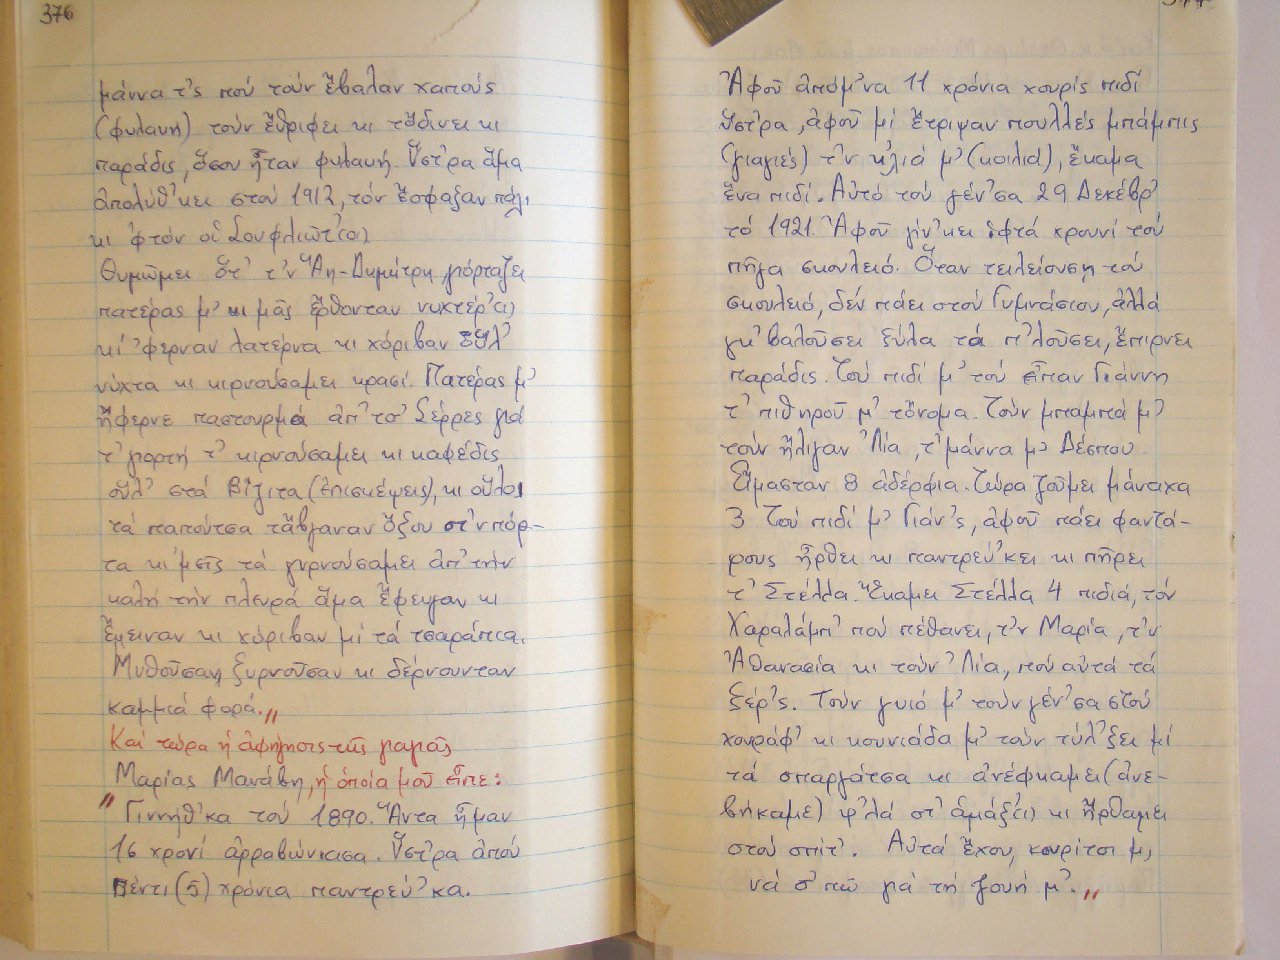 376
μάννα τ'ς πού τούν ἔβαλαν χαπούς
(φυλακή) τούν ἔθριφει κι τὄδινει κι
παράδις, ὅσου ἦταν φυλακή. Ὕστ'ρα ἅμα
ἀπολύθ'κει στού 1912, τόν ἔσφαξαν πάλι
κι φτόν οἱ Σουφλιῶτ(οι)
Θυμῶμει ὅτ' τ'ν Ἅη-Δημήτρη, γιόρταζει
πατέρας μ' κι μᾶς ἔρθονταν νυχτέρ'(ι)
κι 'φερναν λατέρνα κι χόριβαν ὅλ'
νύχτα κι κιρνούσαμει κρασί. Πατέρας μ'
ἤφερνε παστουρμά ἀπ' τσ' Σέρρες γιά
τ' γιορτή τ' κιρνούσαμει κι καφέδις
οὗλ' στά βίζιτα (ἐπισκέψεις), κι οὗλοι
τά παπούτσα τἄβγαναν ὄξου στ'ν πόρ-
τα κι 'μεῖς τά γυρνούσαμει ἀπ' τήν
καλή τήν πλευρά ἅμα ἔφευγαν κι
ἔμειναν κι χόριβαν μί τά τσαράπια.
Μυθοῦσαν, ξυρνοῦσαν κι δέρνουνταν
καμμιά φορά."
Καί τώρα ἡ ἀφήγησις τῆς γιαγιᾶς
Μαρίας Μανάβη, ἡ ὁποία μοῦ εἶπε:
"Γιννήθ'κα τού 1890. Ἄντα ἤμαν
16 χρονί ἀρραβώνιασα. Ὕστ'ρα ἀπού
πέντι (5) χρόνια παντρεύ'κα.
Ἀφοῦ ἀπόμ'να 11 χρόνια χουρίς πιδί
ὕστ'ρα, ἀφοῦ μί ἔτριψαν πουλλές μπάμπις
(γιαγιές) τ'ν κ'λιά μ' (κοιλιά), ἔκαμα
ἕνα πιδί. Αὐτό τού γέν'σα 29 Δεκέβρ'
τό 1921. Ἀφοῦ γίν'κει ἑφτά χρουνί τού
πῆγα σκουλειό. Ὅταν τειλείουση τού
σκουλειό, δέν πάει στού Γυμνάσιου, ἀλλά
γκ'βαλοῦσει ξύλα τά π'λοῦσει, ἔπιρνει
παράδις. Τού πιδί μ' τού εἶπαν Γιάννη
τ' πιθηροῦ μ' τὄνομα. Τούν μπαμπά μ'
τούν ἤλιγαν Λία, τ' μάννα μ' Δέσπου.
Εἴμασταν 8 ἀδέρφια. Τώρα ζοῦμει μάναχα
3 Τού πιδί μ' Γιάν'ς, ἀφοῦ πάει φαντά-
ρους ἦρθει κι παντρεύ'κει κι πῆρει
τ' Στέλλα. Ἔκαμει Στέλλα 4 πιδιά, τόν
Χαραλάμπ' πού πέθανει, τ'ν Μαρία, τ'ν
Ἀθανασία κι τούν Λία, πού αὐτά τά
ξέρ'ς. Τούν γυιό μ' τούν γέν'σα στού
χουράφ' κι κουνιάδα μ' τούν τύλ'ξει μί
τά σπαργάτσα κι ἀνέφκαμει (ἀνε-
βήκαμε) ψ'λά στ' ἁμάξ(ι) κι ἤρθαμει
στού σπίτ'. Αὐτά ἔχου, κουρίτσι μ,
νά σ' πῶ γιά τή ζουή μ'."